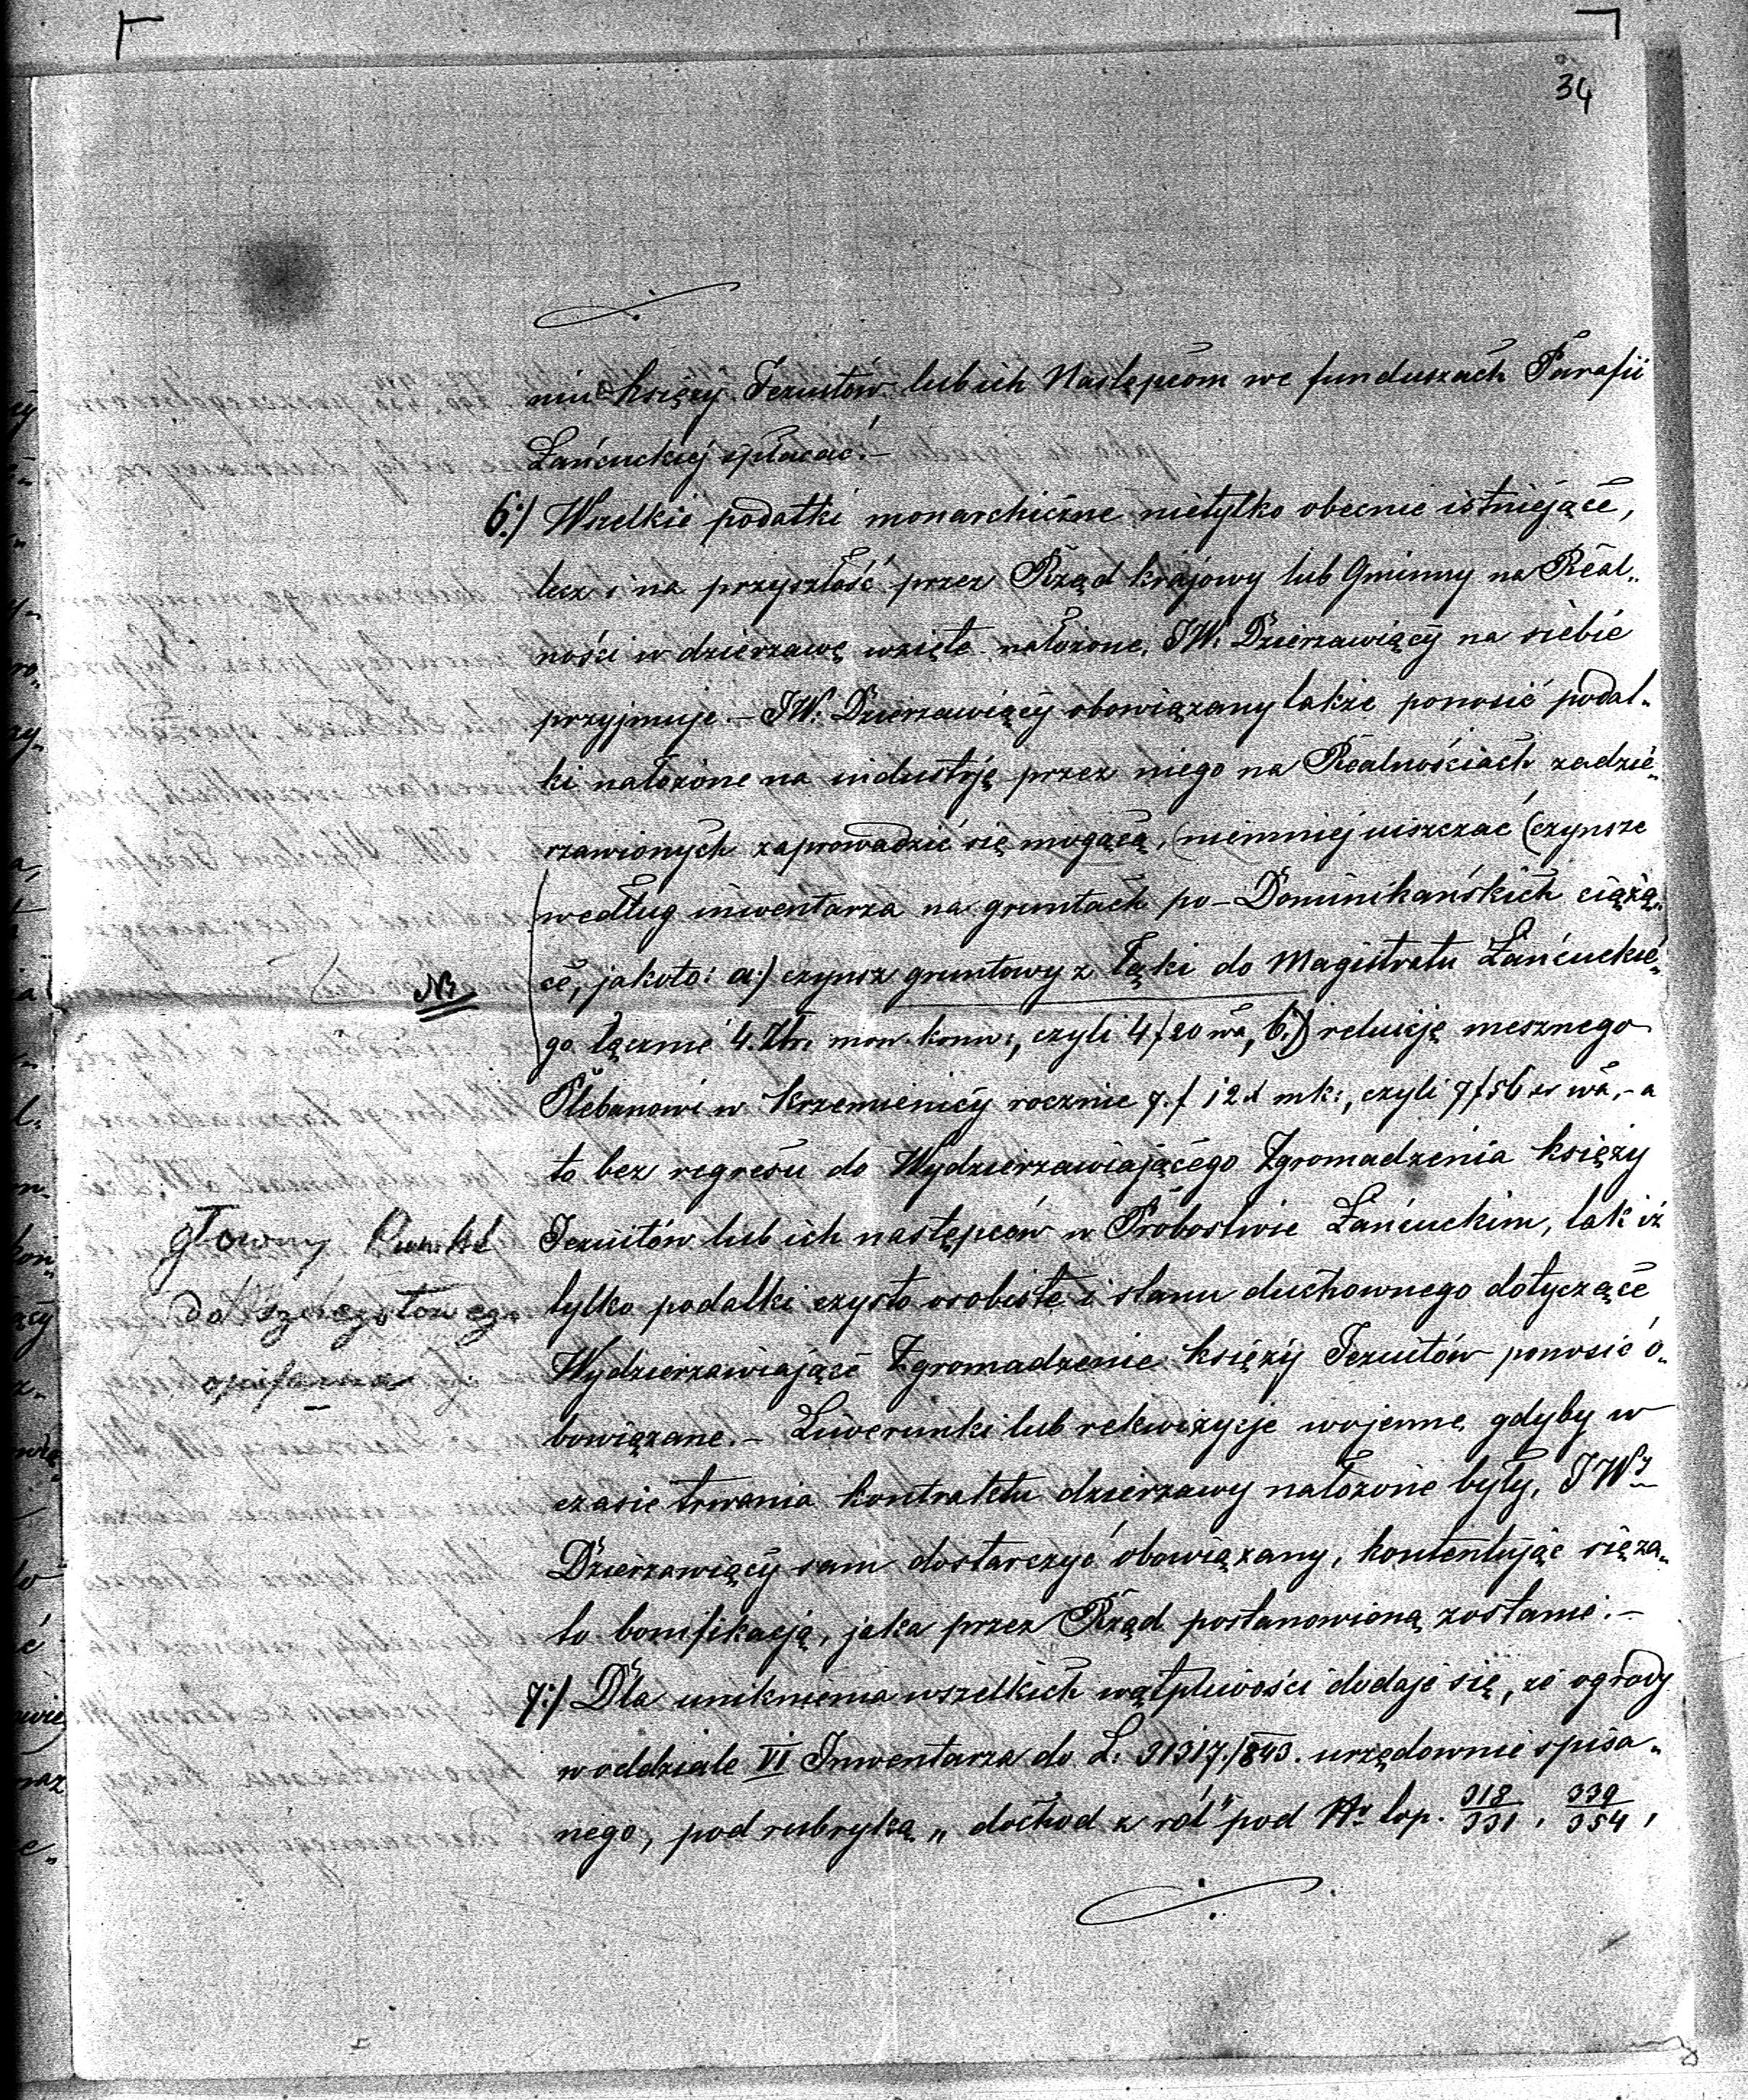 34
niu księży Jezuitów lub ich Następcom we funduszach Parafii
Łańcuckiej spłacać.–
6:) Wszelkie podatki monarchiczne nietylko obecnie istniejące,
lecz i na przyszłość przez Rząd krajowy lub Gminny na Real„
ności w dzierzawę wzięte nałożone, JW. Dzierzawiący na siebie
przyjmuje.– JW. Dzierzawiący obowiązany także ponosić podat„
ki nałożone na industrję przez niego na Realnościach zadzie„
rzawionych zaprowadzić się mogącą, (niemniej uiszczać (czynsze
według inwentarza na gruntach po–Dominikańskich ciążą„
ce, jakoto: a:) czynsz gruntowy z Łąki do Magistratu Łańcuckie„
Nr
go łącznie 4. Złr. mon. konw:, czyli 4 f 20 wa, b:) reluicję mesznego
Plebanowi w Krzemienicy rocznie 7. f 12 x mk:, czyli 7 f 56 wa,– a
to bez regresu do Wydzierzawiającego Zgromadzenia księży
Jezuitów lub ich następców w Probostwie Łańcuckim, tak iż
główny Punkt
do szczegółowego
opisania
tylko podatki czysto osobiste i stanu duchownego dotyczące
Wydzierzawiające Zgromadzenie księży Jezuitów ponosić o„
bowiązane.– Liwerunki lub rekwizycje wojenne, gdyby w
czasie trwania kontraktu dzierzawy nałożone były, JWy
Dzierzawiący sam dostarczyć obowiązany, kontentując się za„
to bonifikacją, jaka przez Rząd postanowioną zostanie.–
7:) Dla uniknienia wszelkich wątpliwości dodaje się, że ogrody
w oddziale VI Inwentarza do L. 31317./843. urzędownie spisa„
nego, pod rubryką „dochod z rol" pod No top. 318/331, 339/354,